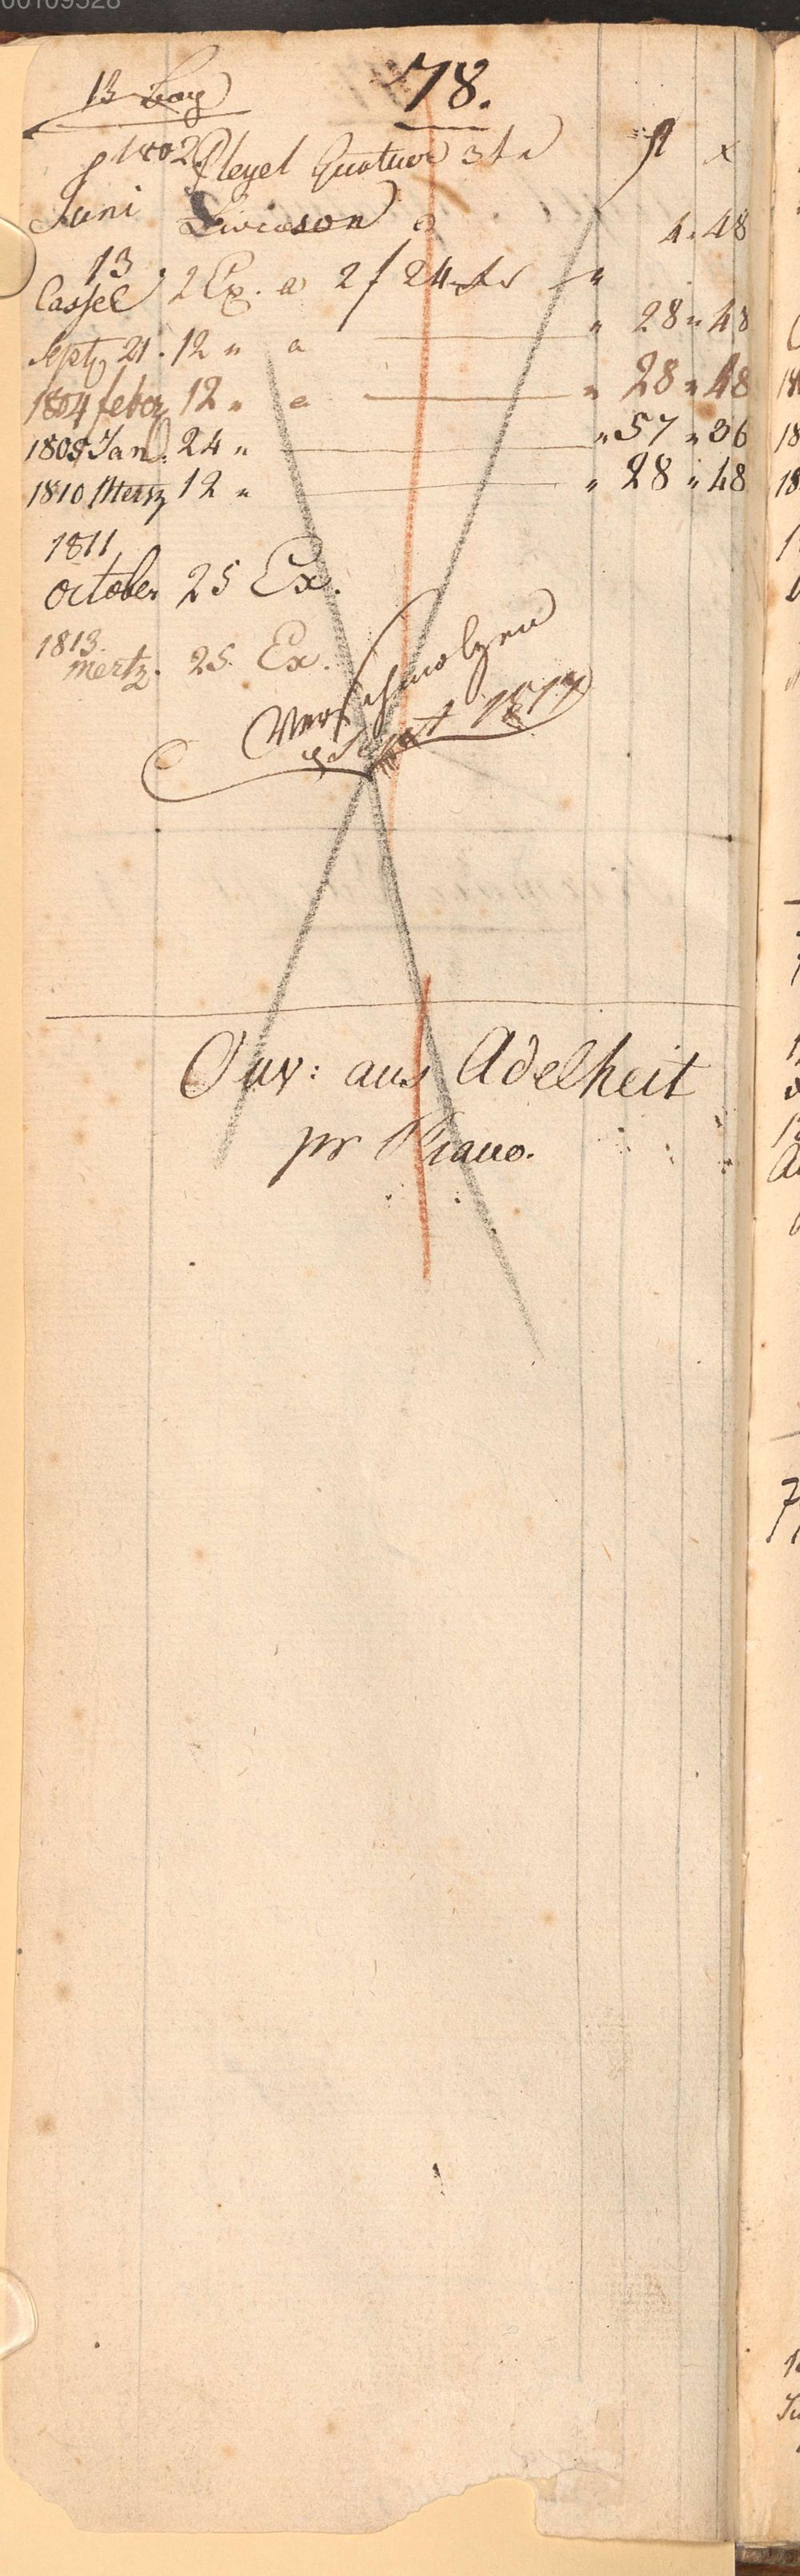 00109528
78.
13 Bog
1802 Pleyel Quatuor 3te fl x
Juni Livraison a 4 " 48
13
Cassel 2 Ex. a 2 f 24 xr "
Septz 21. 12 " a " 28 " 48
1804 febrz 12 " a " 28 " 48
1805 Jan. 24 " " 57 " 36
1810 Mertz 12 " " 28 " 48
1811
October 25 Ex.
1813.
Mertz. 25 Ex.
Verschmolzen
Sept 1817
Ouv: aus Adelheit
pr Piano.